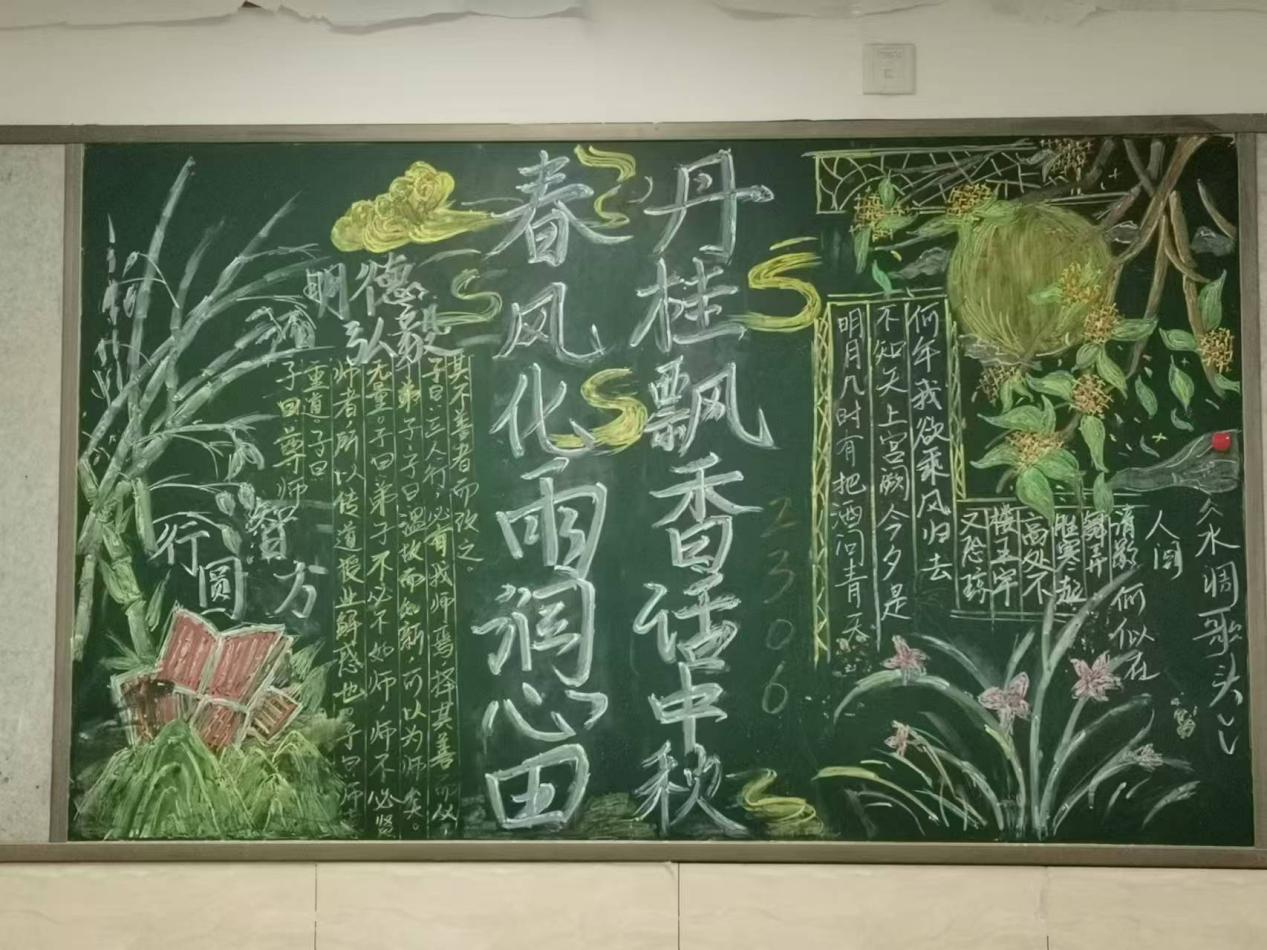 水调歌头
明月几时有把酒问青天
不知天上宫阙今夕是
何年我欲乘风归去
又恐琼
楼玉宇
高处不
胜寒起
舞弄
清影
何似在
人间
丹桂飘香话中秋
春风化雨润心田
2306
明德
弘毅
其不善者而改之。
子曰：三人行，必有我师焉，择其善而从，
弟子，子曰温故而知新，可以为师矣。
无量。子曰弟子不必不如师，师不必贤
师者所以传道授业解惑也 子曰师
重道。子曰
子曰尊师
智
方
行
圆